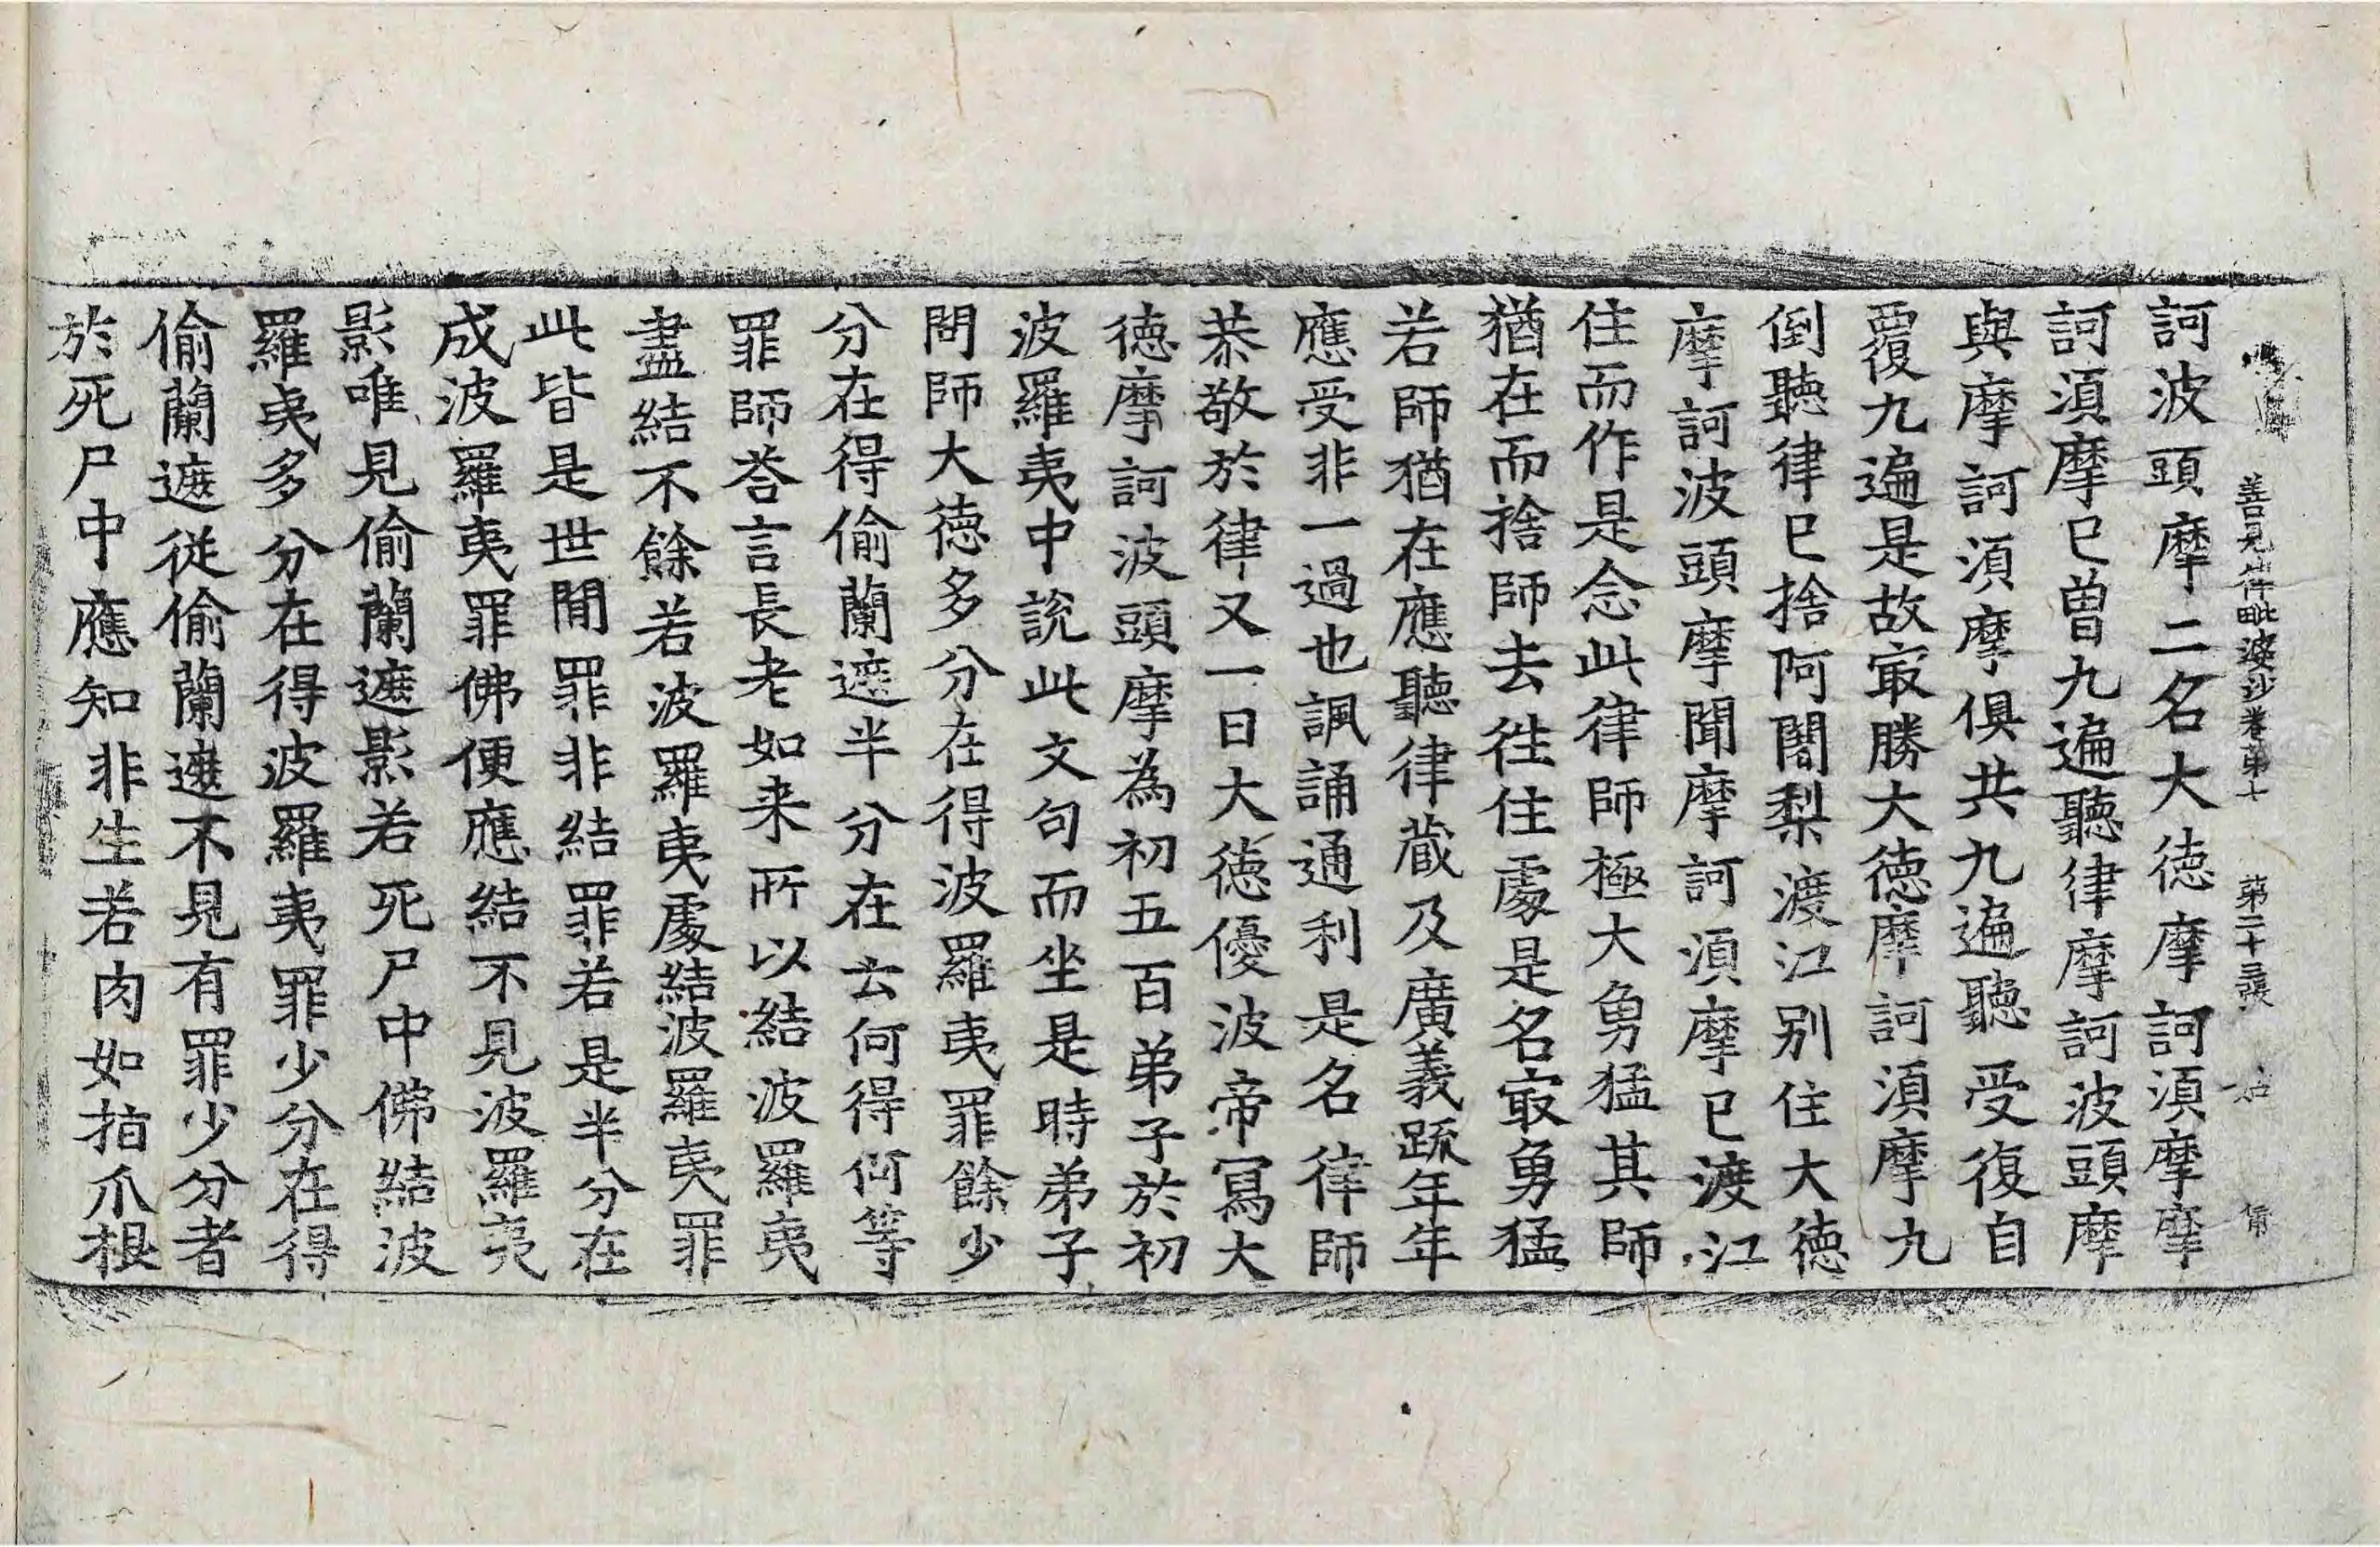 善見律毗婆沙卷第十 第二十三張
訶波頭摩二名大徳摩訶湏摩摩
訶湏摩巳曽九遍聽律摩訶波頭摩
與摩訶湏摩俱共九遍聽受復自
覆九遍是故㝡勝大徳摩訶湏摩九
倒聽律巳捨阿闍梨渡江别住大徳
摩訶波頭摩聞摩訶湏摩巳渡江
住而作是念此律師極大勇猛其師
猶在而捨師去徃住䖏是名㝡勇猛
若師猶在應聽律蔵及廣義䟽年年
應受非一過也諷誦通利是名律師
恭敬於律又一日大徳優波帝寫大
徳摩訶波頭摩為初五百弟子於初
波羅夷中說此文句而坐是時弟子
問師大徳多分在得波羅夷罪餘少
分在得偷蘭遮半分在去何得何等
罪師荅言長老如来所以結波羅夷
盡結不餘若波羅夷䖏結波羅夷罪
此皆是世間罪非結罪若是半分在
成波羅夷罪佛便應結不見波羅夷
影唯見偷蘭遮影若死尸中佛結波
羅夷多分在得波羅夷罪少分在得
偷蘭遮從偷蘭遮不見有罪少分者
於死尸中應知非生若肉如指爪根